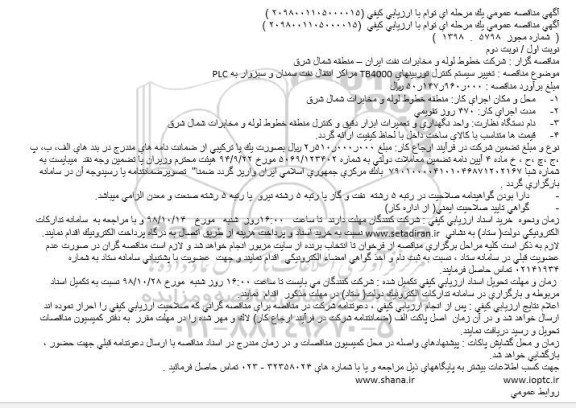 آگهي مناقصه عمومي يك مرحله اي توام با ارزيابي كيفي (۲۰۹۸۰۰۱۱۰۵۰۰۰۰۱۵ )
آگهي مناقصه عمومي يك مرحله اي توام با ارزيابي كيفي (۲۰۹۸۰۰۱۱۰۵۰۰۰۰۱۵ )
( شماره مجوز ۵۷۹۸ . ۱۳۹۸ )
نوبت اول / نوبت دوم
مناقصه گزار : شركت خطوط لوله و مخابرات نفت ايران – منطقه شمال شرق
موضوع مناقصه : تغيير سيستم كنترل توربينهاي TB4000 مراكز انتقال نفت سمنان و سبزوار به PLC
مبلغ برآورد مناقصه : ۵۰٫۱۴۷٫۹۶۰٫۰۰۰ ريال
۱- محل و مكان اجراي كار: منطقه خطوط لوله و مخابرات شمال شرق
۲- مدت اجراي كار: ۴۷۰ روز تقويمي
۳- نام دستگاه نظارت: واحد نگهداري و تعميرات ابزار دقيق و كنترل منطقه خطوط لوله و مخابرات شمال شرق
۴- قيمت ها متناسب با كالاي ساخت داخل با لحاظ كيفيت ارائه گردد.
نوع و مبلغ تضمين شركت در فرآيند ارجاع كار: مبلغ ۲٫۵۱۰٫۰۰۰٫۰۰۰ ريال بصورت يك يا تركيبي از ضمانت نامه هاي مندرج در بند هاي الف، ب، پ
،ج ،چ ،ح ، خ ماده ۴ آيين نامه تضمين معاملات دولتي به شماره ۱۲۳۴۰۲/ت۵۰۶۵۹ مورخ ۹۴/۹/۲۲ هيئت محترم وزيران يا تضمين وجه نقد ميبايست به
شماره شبا ۷۹۰۱۰۰۰۰۴۱۰۱۰۴۶۸۷۱۲۰۲۱۶۷ بانك مركزي جمهوري اسلامي ايران واريز گردد ضمنا" تصويرضمانتنامه يا رسيدوجه آن در سامانه
بارگزاري گردد .
- دارا بودن گواهينامه صلاحيت در رتبه ۵ رشته نفت و گاز يا رتبه ۵ رشته نيرو يا رتبه ۵ رشته صنعت و معدن الزامي ميباشد.
- گواهي تاييد صلاحيت ايمني( از اداره كار)
زمان ونحوه خريد اسناد ارزيابي كيفي : شركت كنندگان مهلت دارند تا ساعت ۱۶:۰۰ روز شنبه مورخ ۹۸/۱۰/۱۴ و با مراجعه به سامانه تداركات
الكترونيكي دولت( ستاد) به نشاني www.setadiran.ir نسبت به خريد اسناد و پرداخت هزينه از طريق اتصال به درگاه پرداخت الكترونيك اقدام نمايند.
لازم به ذكر است كليه مراحل برگزاري مناقصه از فرخوان تا انتخاب برنده از سايت مزبور انجام خواهد شد و لازم است مناقصه گران در صورت عدم
عضويت قبلي در سامانه ستاد ، نسبت به ثبت نام و اخذ گواهي امضاء الكترونيكي اقدام نمايند و جهت عضويت با پشتيباني سامانه ستاد به شماره
۰۲۱۴۱۹۳۴ تماس حاصل فرمايند.
زمان و مهلت تحويل اسناد ارزيابي كيفي تكميل شده : شركت كنندگان مي بايست تا ساعت ۱۶:۰۰ روز شنبه مورخ ۹۸/۱۰/۲۸ نسبت به تكميل اسناد
مربوطه و بارگذاري در سامانه تداركات الكترونيك دولت( ستاد) در مهلت مذكور اقدام نمايند.
اعلام نتايج ارزيابي كيفي : پس از انجام ارزيابي كيفي ، دعوتنامه شركت در مناقصه براي مناقصه گراني كه صلاحيت ارزيابي كيفي را احراز نموده اند
ارسال خواهد شد و در آن زمان اصل پاكت الف (ضمانتنامه شركت در فرآيند ارجاع كار) لاك و مهر شده را در مهلت مقرر به دفتر كميسيون مناقصات
تحويل و رسيد دريافت نمايند.
زمان و محل گشايش پاكات : پيشنهادهاي واصله در محل كميسيون مناقصات و در زمان مندرج در اسناد مناقصه با ارسال دعوتنامه قبلي جهت حضور ،
بازگشايي خواهد شد.
جهت كسب اطلاعات بيشتر به پايگاههاي ذيل مراجعه و يا با شماره هاي ۳۲۳۵۸۰۲۴ – ۰۲۳ تماس حاصل فرمائيد .
www.shana.ir www.ioptc.ir
روابط عمومي